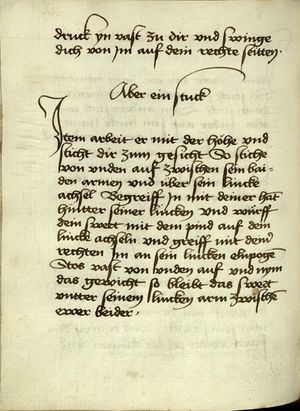 druck yn vast zu dir und swinge
dich von im auf dein rechte seitten.
Aber ein stuck
Item arbeit er mit der höhe und
sticht dir zum gesicht So stiche
von unden auf zwischen sein bai-
den armen und über sein lincke
achsel Begreiff In mit deiner hāt
hinter seiner lincken und würff
dein swert mit dem pind auf dem
lincke achseln und greiff mit deiner
rechten im an sein lincken elnpogē
Stos vast von unden auf und nym
das gewicht so bleibt das swert
unter seinem lincken arm zwischē
ewer beider.